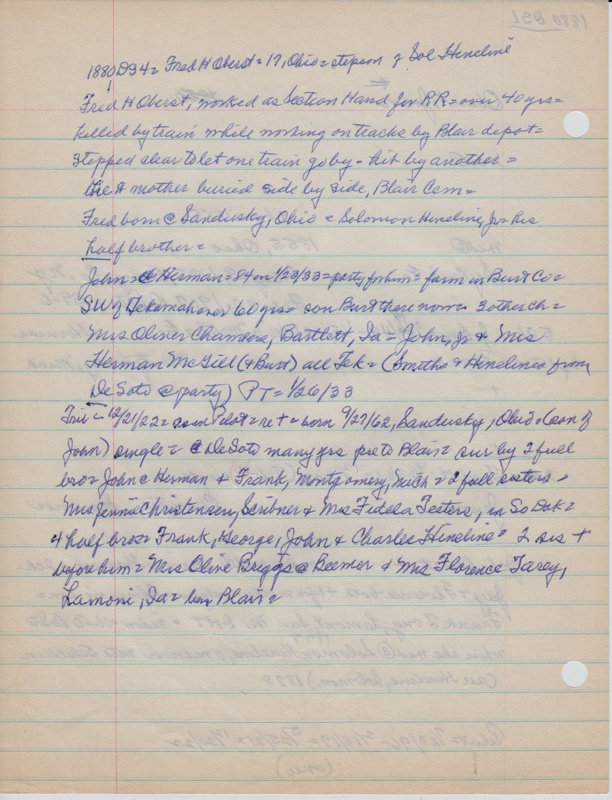 1880 DS4 = Fred H Oberst = 17, Ohio = stepson of Sol Hineline
Fred H Oberst, worked as Section Hand for RR = over 40 yrs =
killed by train while working on tracks by Blair depot =
stepped clear to let one train go by - hit by another =
He & mother buried side by side, Blair Cem =
Fred born @ Sandusky, Ohio = Solomon Hineline, Jr = his
half brother =
John = @ Herman = 84 on 1/23/33 = party for him = farm in Burt Co =
SW of Tekamah over 60 yrs = son Burt there now = 3 other ch =
Mrs Oliver Chambers, Bartlett, Ia = John, Jr & Mrs
Herman McGill (& Burt) all Tek = (Smiths & Hinelines from
DeSoto @ party) PT = 1/26/33
12/21/22 = Pilot = born 9/27/62, Sandusky, Ohio = (son of
John) single = @ DeSoto many yrs pre to Blair = sur by 2 full
bro = John @ Herman & Frank, Montgomery, Mich = 2 full sisters =
Mrs Jennie Christensen, Scribner & Mrs Fidela Testers, in So Dak =
4 half bro = Frank, George, John & Charles Hineline = 2 sis +
before him = Mrs Olive Briggs @ Beemer & Mrs Florence Tarey,
Lamoni, Ia = bury Blair =